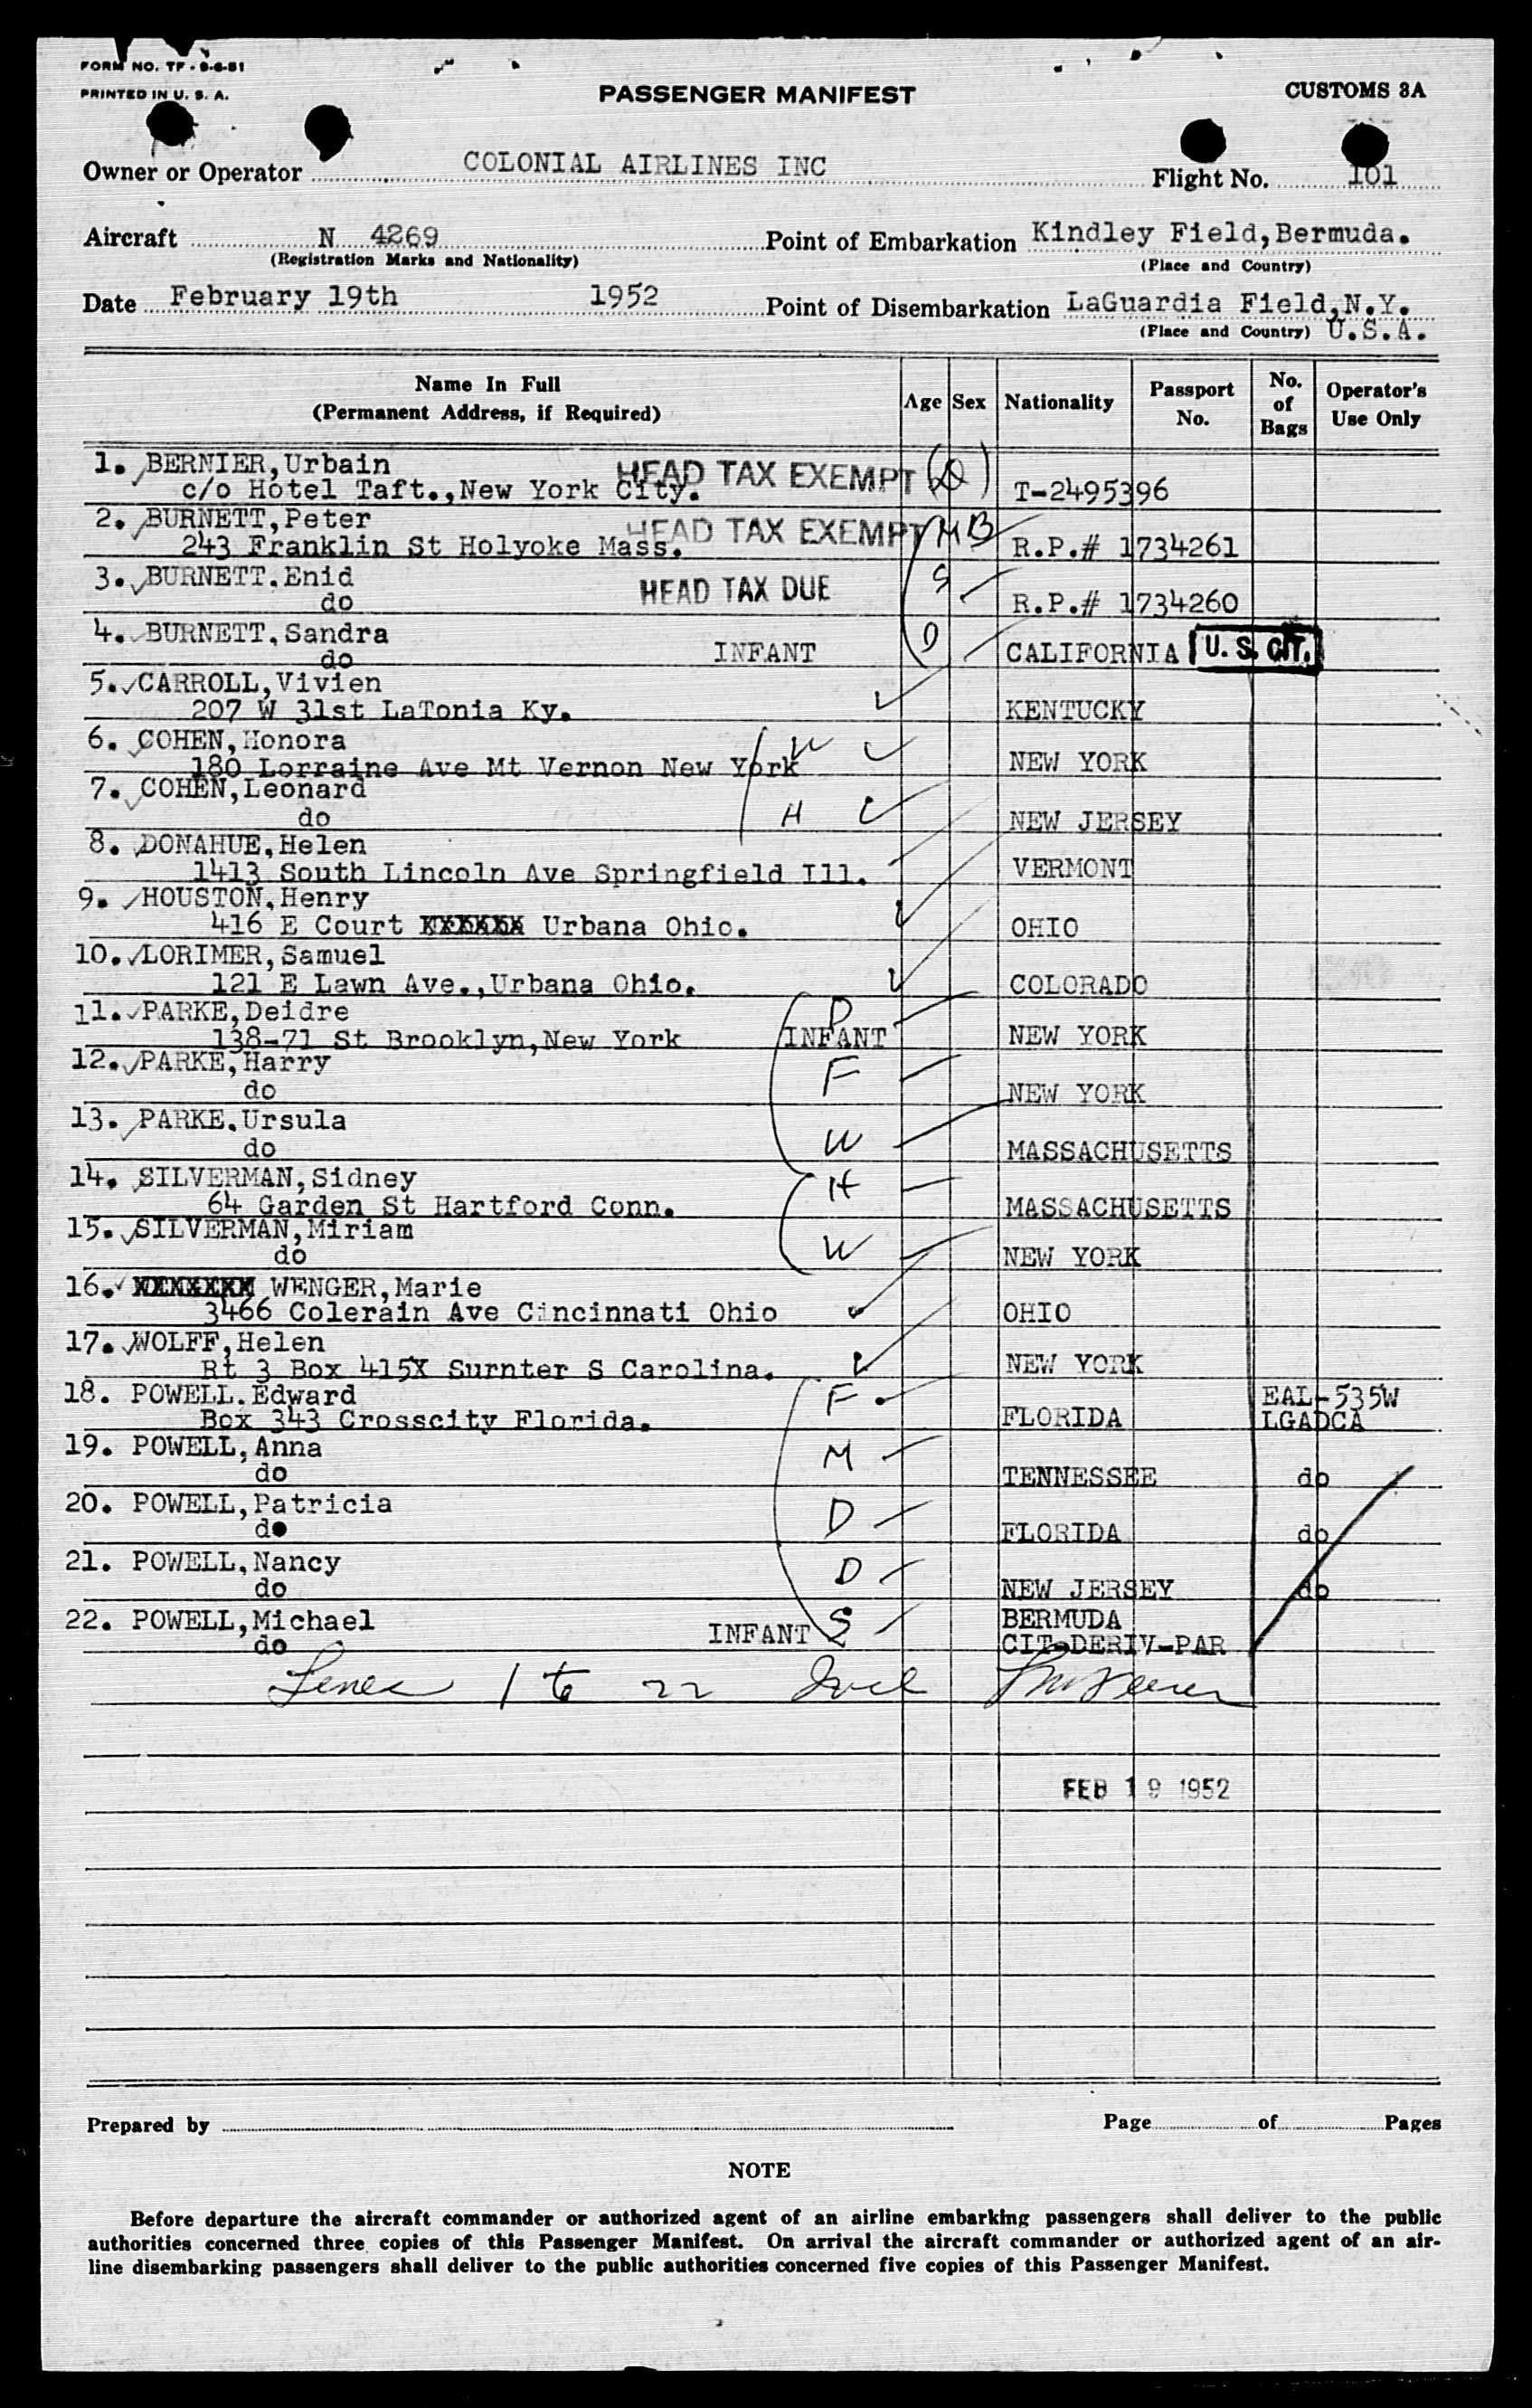 FORM NO. TF - 9-6-51
PRINTED IN U. S. A.
PASSENGER MANIFEST
CUSTOMS 3A
Owner or Operator COLONIAL AIRLINES INC Flight No. 101
Aircraft N 4269 Point of Embarkation Kindley Field,Bermuda.
(Registration Marks and Nationality) (Place and Country)
Date February 19th 1952 Point of Disembarkation LaGuardia Field,N.Y.
(Place and Country) U.S.A.
Name In Full (Permanent Address, if Required) Age Sex Nationality Passport No. No. of Bags Operator's Use Only
1. BERNIER,Urbain HEAD TAX EXEMPT
c/o Hotel Taft.,New York City. T-2495396
2. BURNETT,Peter HEAD TAX EXEMPT H B
243 Franklin St Holyoke Mass. R.P.# 1734261
3. BURNETT.Enid HEAD TAX DUE S
do R.P.# 1734260
4. BURNETT,Sandra D
do INFANT CALIFORNIA U. S. CIT.
5. CARROLL,Vivien
207 W 31st LaTonia Ky. KENTUCKY
6. COHEN,Honora W
180 Lorraine Ave Mt Vernon New York NEW YORK
7. COHEN,Leonard H
do NEW JERSEY
8. DONAHUE,Helen
1413 South Lincoln Ave Springfield Ill. VERMONT
9. HOUSTON,Henry
416 E Court XXXXXX Urbana Ohio. OHIO
10. LORIMER,Samuel
121 E Lawn Ave.,Urbana Ohio. COLORADO
11. PARKE,Deidre D
138-71 St Brooklyn,New York INFANT NEW YORK
12. PARKE,Harry F
do NEW YORK
13. PARKE.Ursula W
do MASSACHUSETTS
14. SILVERMAN,Sidney H
64 Garden St Hartford Conn. MASSACHUSETTS
15. SILVERMAN,Miriam W
do NEW YORK
16. XXXXXXX WENGER,Marie
3466 Colerain Ave Cincinnati Ohio OHIO
17. WOLFF,Helen
Rt 3 Box 415X Surnter S Carolina. NEW YORK
18. POWELL.Edward F EAL-535W
Box 343 Crosscity Florida. FLORIDA LGADCA
19. POWELL,Anna M
do TENNESSEE do
20. POWELL,Patricia D
do FLORIDA do
21. POWELL,Nancy D
do NEW JERSEY do
22. POWELL,Michael INFANT S BERMUDA
do CIT-DERIV-PAR
Lines 1 to 22 Incl
FEB 19 1952
Prepared by Page of Pages
NOTE
Before departure the aircraft commander or authorized agent of an airline embarking passengers shall deliver to the public
authorities concerned three copies of this Passenger Manifest. On arrival the aircraft commander or authorized agent of an air-
line disembarking passengers shall deliver to the public authorities concerned five copies of this Passenger Manifest.